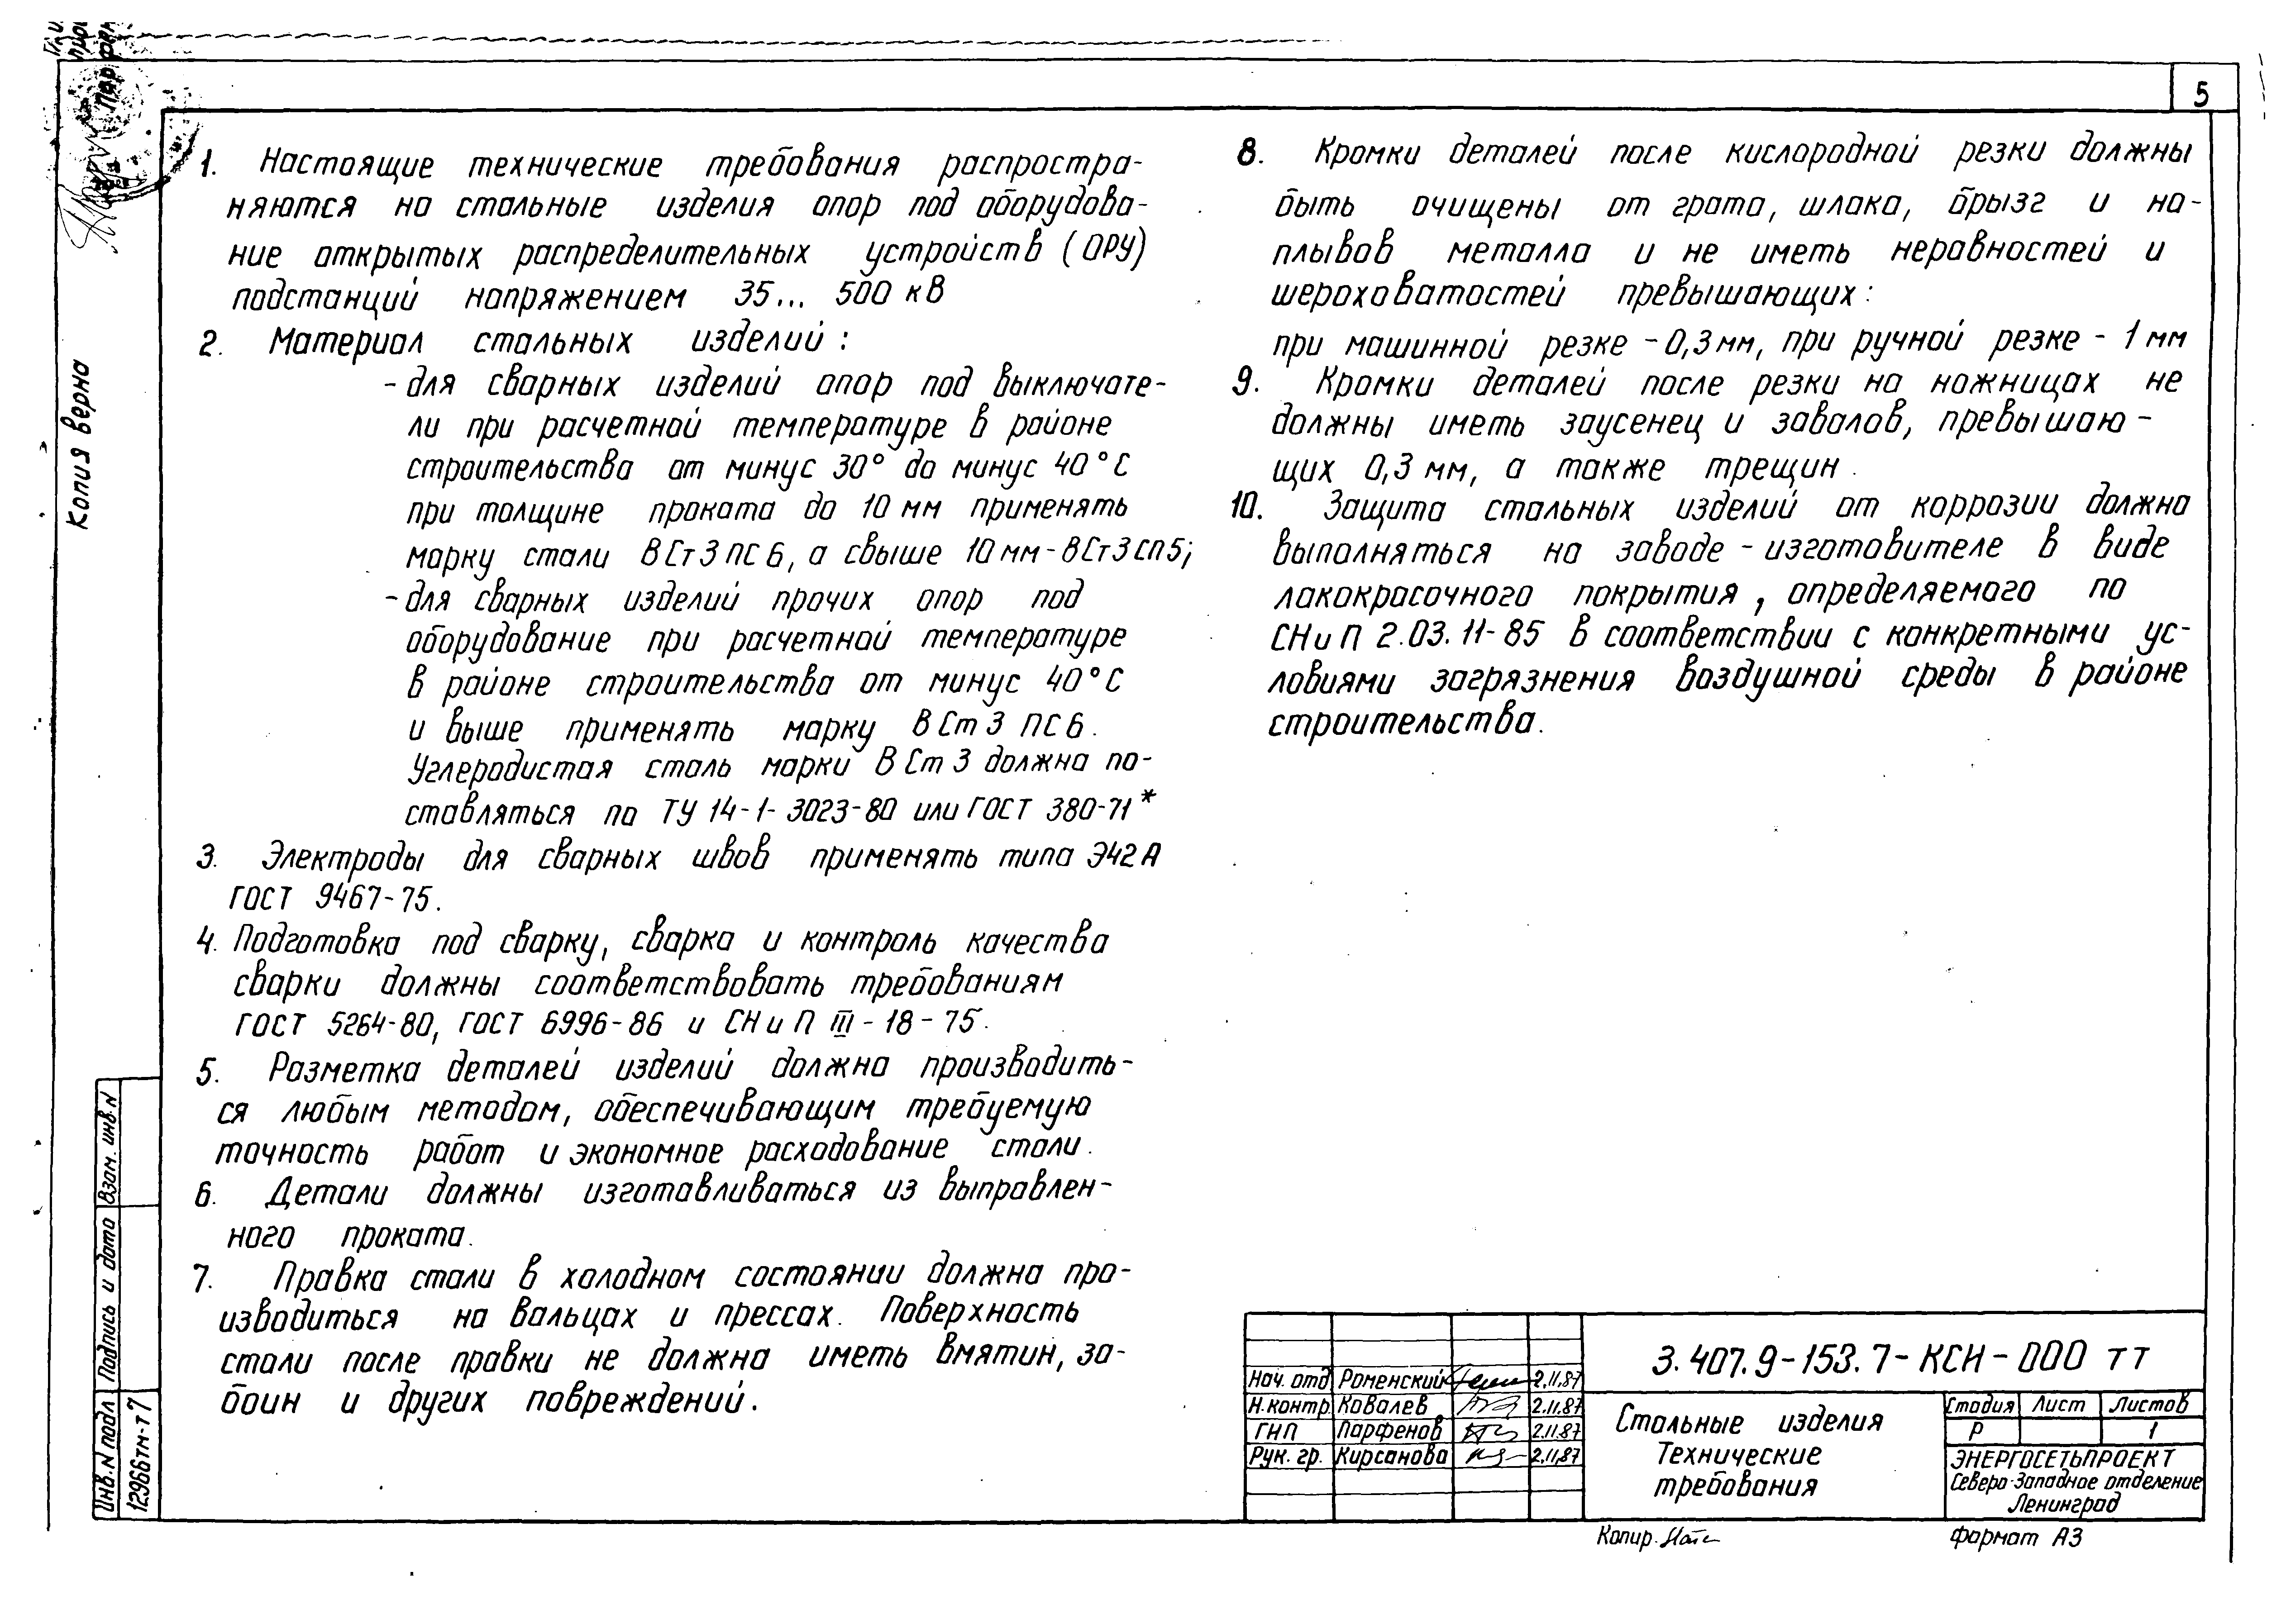 5
1. Настоящие технические требования распростра-
няются на стальные изделия опор под оборудова-
ние открытых распределительных устройств (ОРУ)
подстанций напряжением 35... 500 кВ
2. Материал стальных изделий:
- для сварных изделий опор под выключате-
ли при расчетной температуре в районе
строительства от минус 30° до минус 40°С
при толщине проката до 10 мм применять
марку стали ВСт3ПС6, а свыше 10 мм - ВСт3сп5;
- для сварных изделий прочих опор под
оборудование при расчетной температуре
в районе строительства от минус 40°С
и выше применять марку ВСт3ПС6.
Углеродистая сталь марки ВСт3 должна по-
ставляться по ТУ 14-1-3023-80 или ГОСТ 380-71*
3. Электроды для сварных швов применять типа Э42А
ГОСТ 9467-75.
4. Подготовка под сварку, сварка и контроль качества
сварки должны соответствовать требованиям
ГОСТ 5264-80, ГОСТ 6996-86 и СНиП III-18-75.
5. Разметка деталей изделий должна производить-
ся любым методом, обеспечивающим требуемую
точность работ и экономное расходование стали.
6. Детали должны изготавливаться из выправлен-
ного проката.
7. Правка стали в холодном состоянии должна про-
изводиться на вальцах и прессах. Поверхность
стали после правки не должна иметь вмятин, за-
боин и других повреждений.
8. Кромки деталей после кислородной резки должны
быть очищены от грата, шлака, брызг и на-
плывов металла и не иметь неравностей и
шероховатостей превышающих:
при машинной резке - 0,3 мм, при ручной резке - 1 мм
9. Кромки деталей после резки на ножницах не
должны иметь заусенец и завалов, превышаю-
щих 0,3 мм, а также трещин.
10. Защита стальных изделий от коррозии должна
выполняться на заводе-изготовителе в виде
лакокрасочного покрытия, определяемого по
СНиП 2.03.11-85 в соответствии с конкретными ус-
ловиями загрязнения воздушной среды в районе
строительства.
Копия верна
Взам. инв. N
Подпись и дата
Инв. N подл
12966тм-т7
3.407.9-153.7-КСИ-000 ТТ
Нач. отд Роменский 2.11.87
Н.контр. Ковалев 2.11.87
ГИП Парфенов 2.11.87
Рук. гр. Кирсанова 2.11.87
Стальные изделия
Технические
требования
Стадия Лист Листов
Р 1
ЭНЕРГОСЕТЬПРОЕКТ
Северо-Западное отделение
Ленинград
Копир.
Формат А3